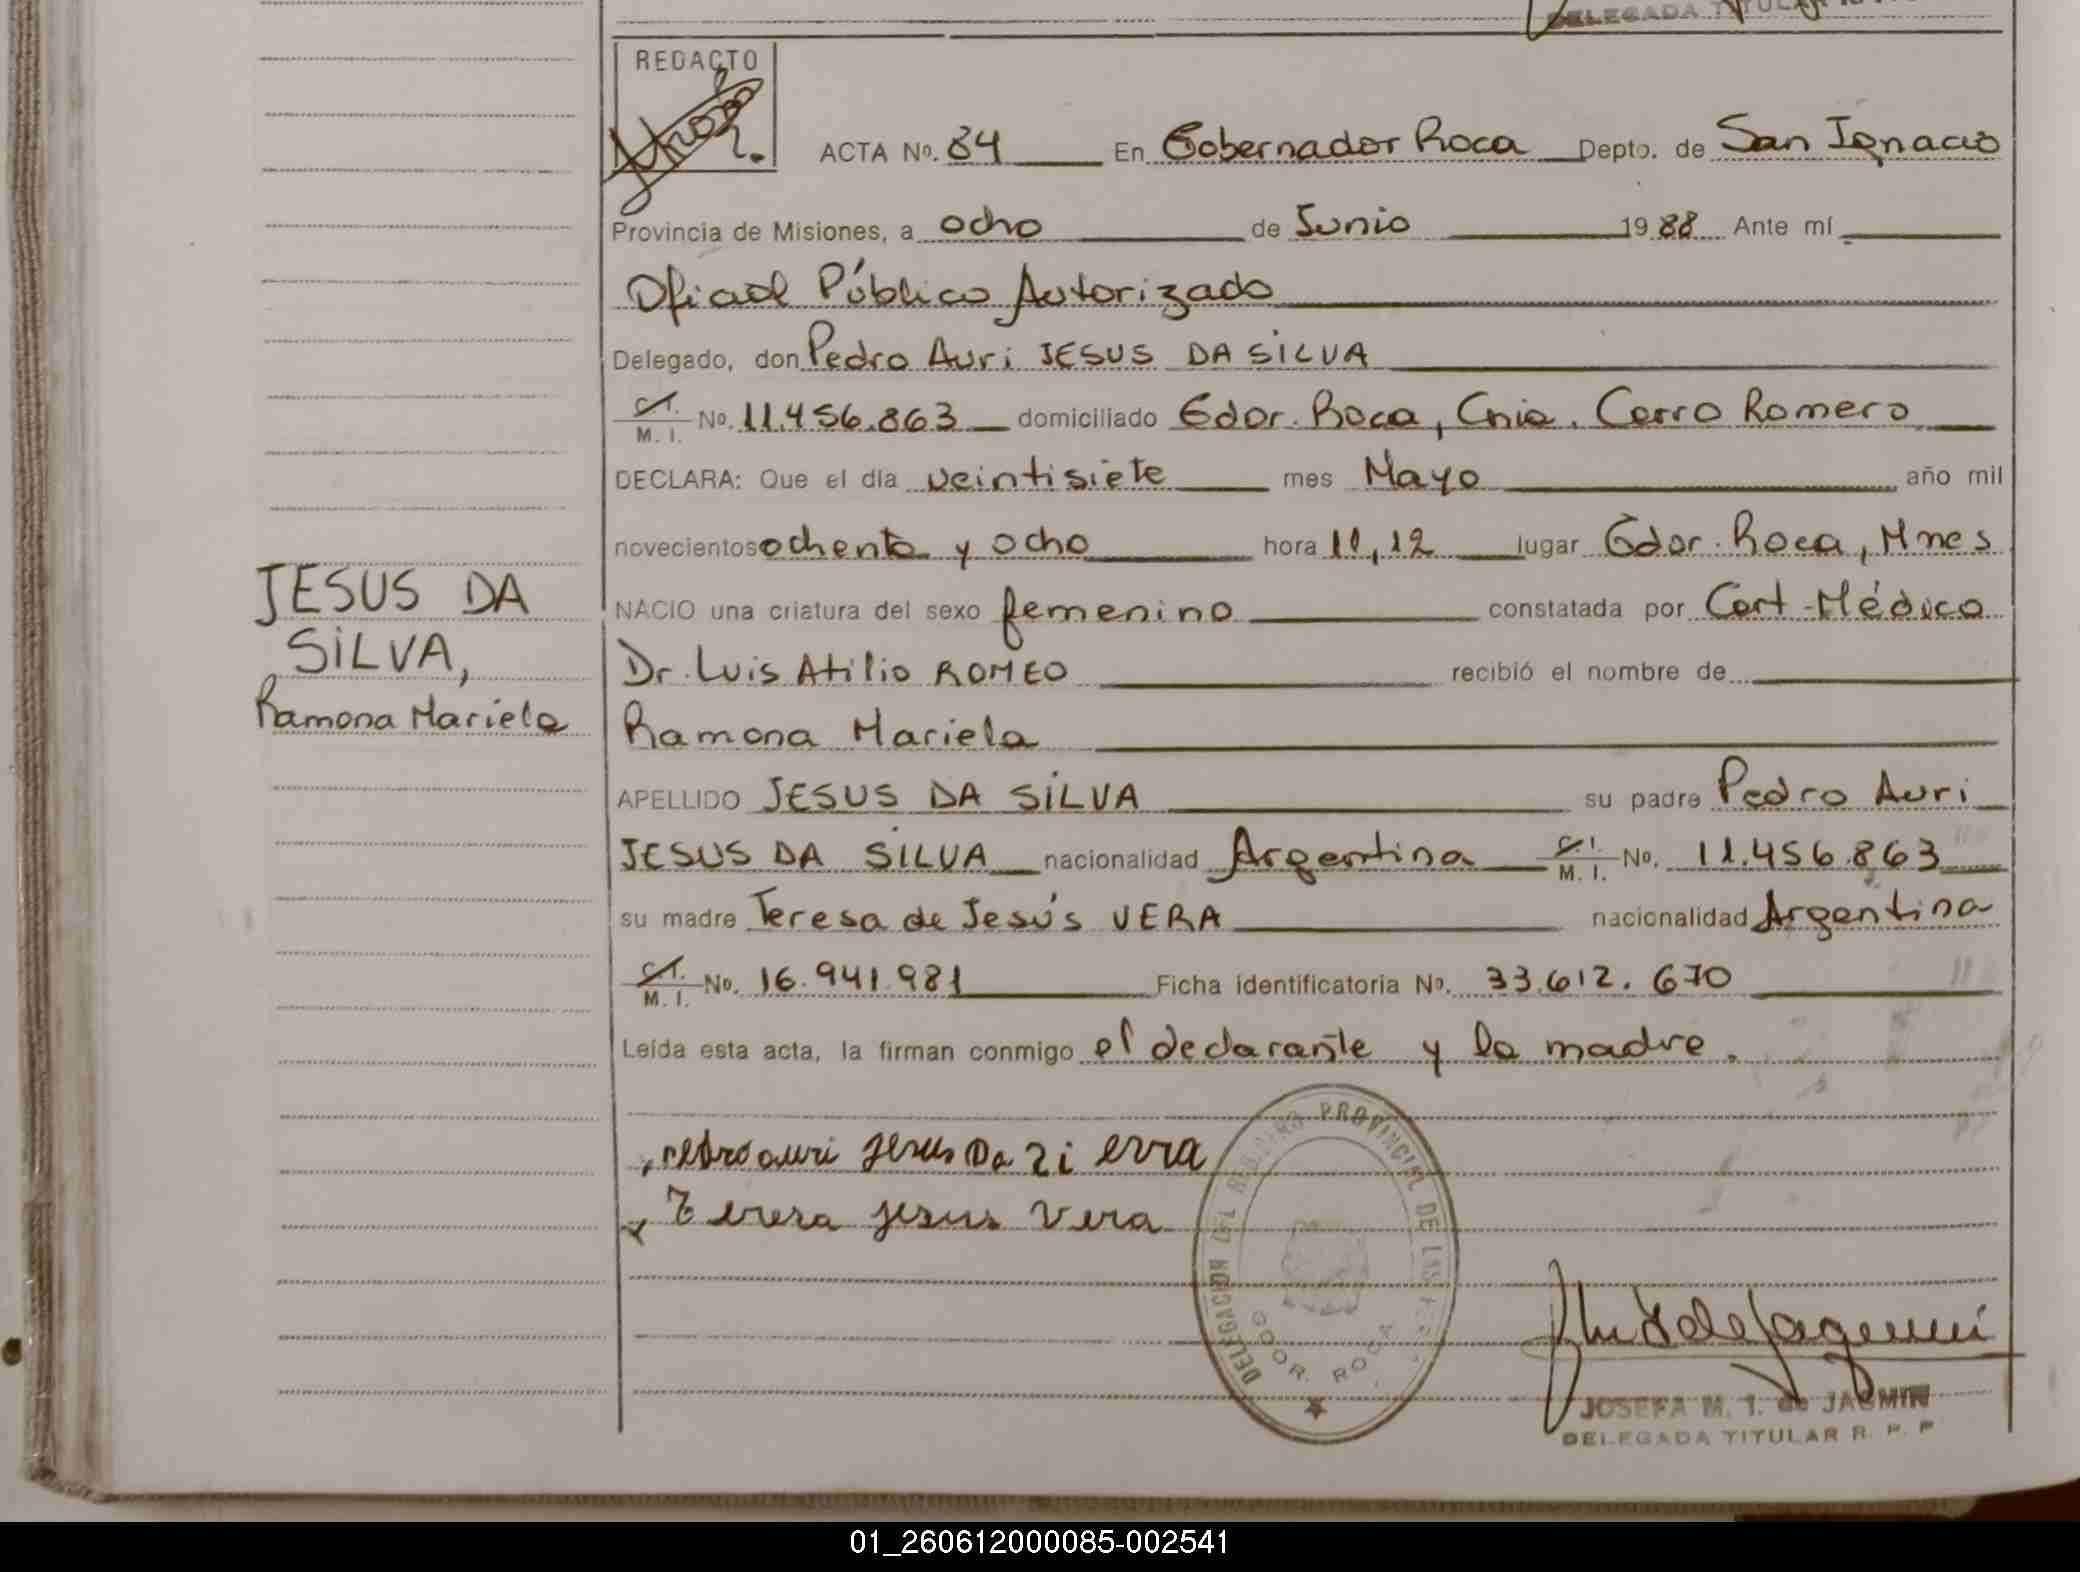 DELEGADA TITULAR
REDACTO
ACTA No. 84 En Gobernador Roca Depto. de San Ignacio
Provincia de Misiones, a ocho de Junio 1988 Ante mí
Oficial Público Autorizado
Delegado, don Pedro Auri JESUS DA SILVA
C.I. M. I. No. 11.456.863 domiciliado Gdor. Roca, Cnia. Cerro Romero
DECLARA: Que el día veintisiete mes Mayo año mil
novecientos ochenta y ocho hora 11,12 lugar Gdor. Roca, Mnes
NACIO una criatura del sexo femenino constatada por Cert-Médico
Dr. Luis Atilio ROMEO recibió el nombre de
Ramona Mariela
JESUS DA
SILVA,
Ramona Mariela
APELLIDO JESUS DA SILVA su padre Pedro Auri
JESUS DA SILVA nacionalidad Argentina C.I. M. I. No. 11.456.863
su madre Teresa de Jesús VERA nacionalidad Argentina
C.I. M. I. No. 16.941.981 Ficha identificatoria No. 33.612.670
Leída esta acta, la firman conmigo el declarante y la madre.
Jesus Da
Jesus Vera
DELEGACION DEL REGISTRO PROVINCIAL DE LAS
GDOR. ROCA
JOSEFA M. T. de JASMIN
DELEGADA TITULAR R. P. P
01_260612000085-002541